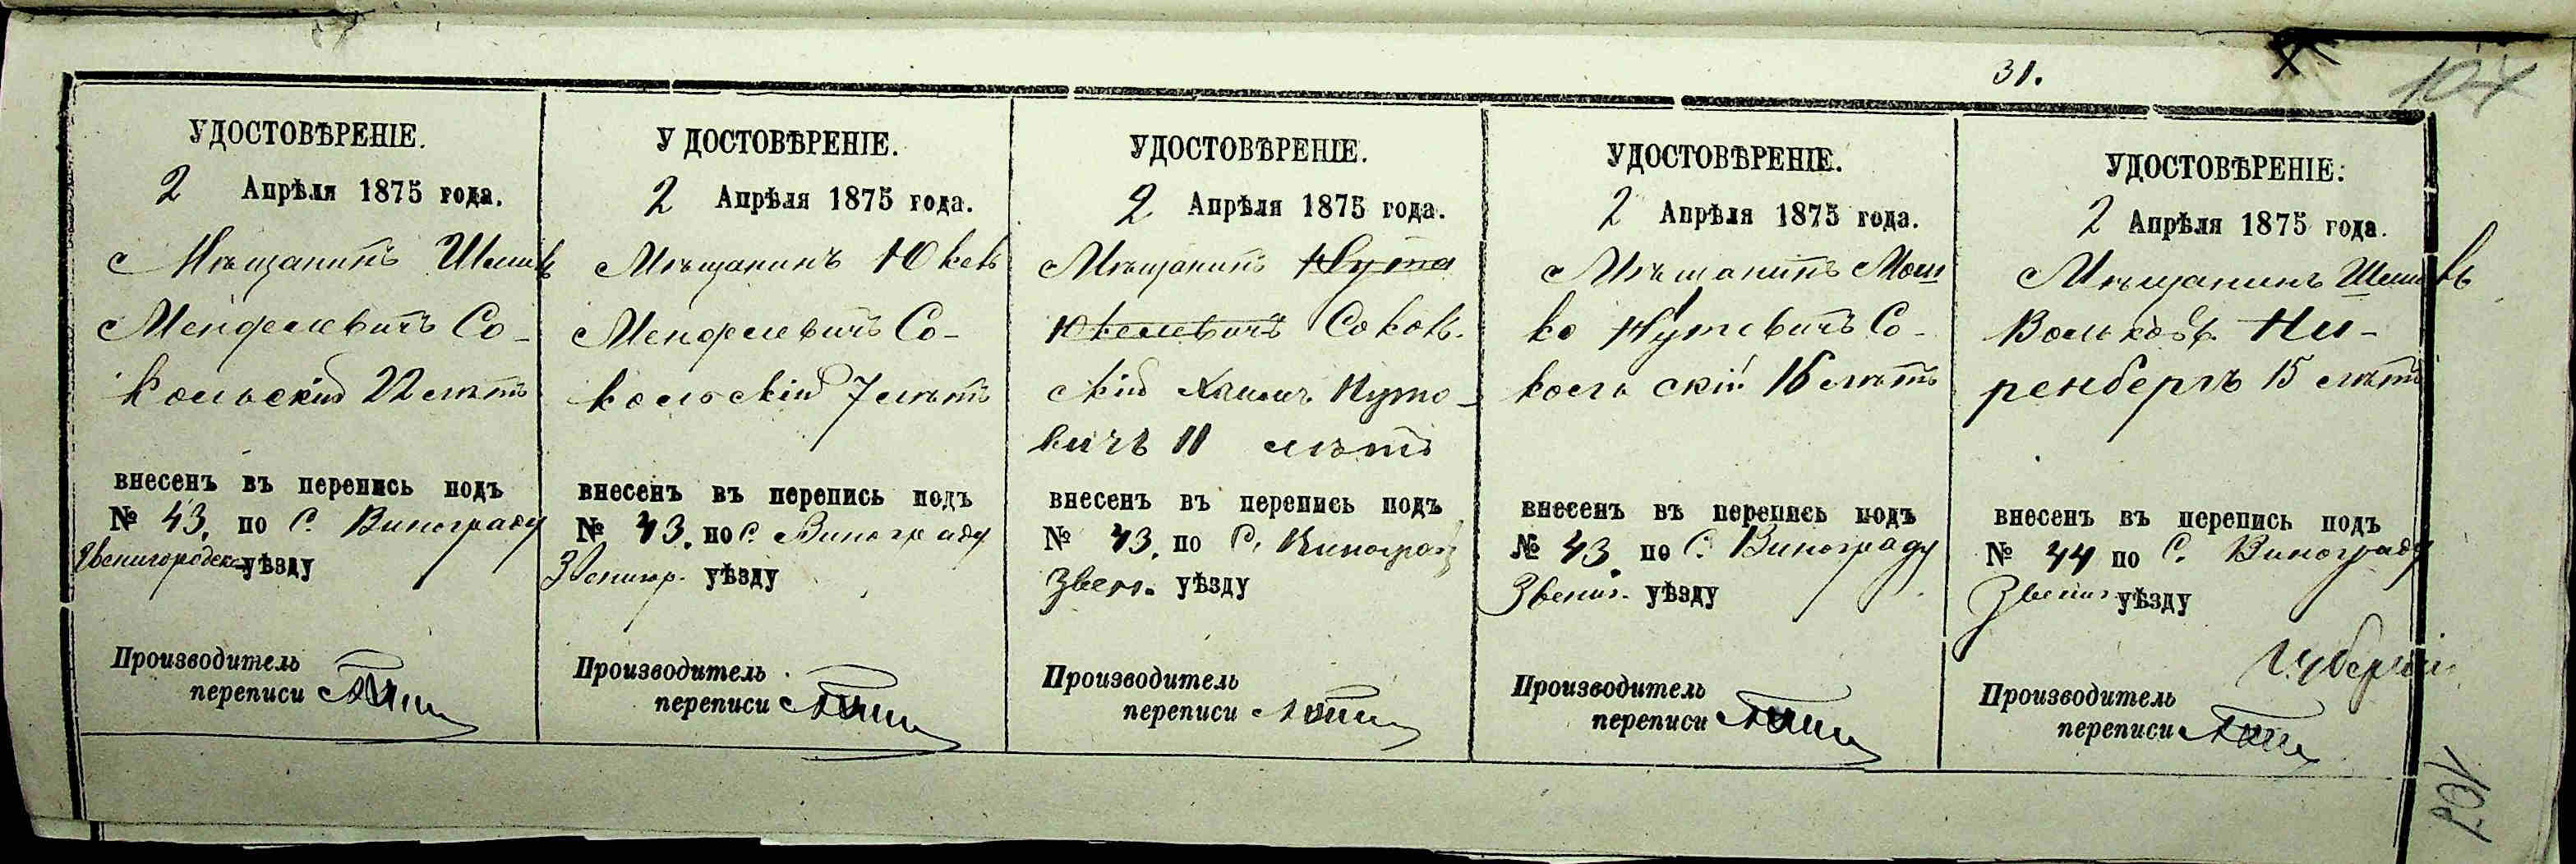 31.
104
УДОСТОВѢРЕНІЕ.
2 Апрѣля 1875 года.
Мѣщанинъ
Менделевичъ Со-
кольскій 22 лѣтъ
внесенъ въ перепись подъ
№ 43, по С. Винограду
уѣзду
Производитель
переписи
УДОСТОВѢРЕНІЕ.
2 Апрѣля 1875 года.
Мѣщанинъ
Менделевичъ Со-
кольскій 7 лѣтъ
внесенъ въ перепись подъ
№ 43. по С. Винограду
Звенигор. уѣзду
Производитель
переписи
УДОСТОВѢРЕНІЕ.
2 Апрѣля 1875 года.
Мѣщанинъ Нута
Юкелевичъ Соколь-
скій Нуто-
вичъ 11 лѣтъ
внесенъ въ перепись подъ
№ 43, по С. Винограду
Звен. уѣзду
Производитель
переписи
УДОСТОВѢРЕНІЕ.
2 Апрѣля 1875 года.
Мѣщанинъ Мош
ко Нутевичъ Со-
кольскій 16 лѣтъ
внесенъ въ перепись подъ
№ 43. по С. Винограду
Звениг. уѣзду
Производитель
переписи
УДОСТОВѢРЕНІЕ.
2 Апрѣля 1875 года.
Мѣщанинъ
Вольковъ Ни-
ренбергъ 15 лѣтъ
внесенъ въ перепись подъ
№ 44 по С. Винограду
Звениг уѣзду
Производитель
переписи